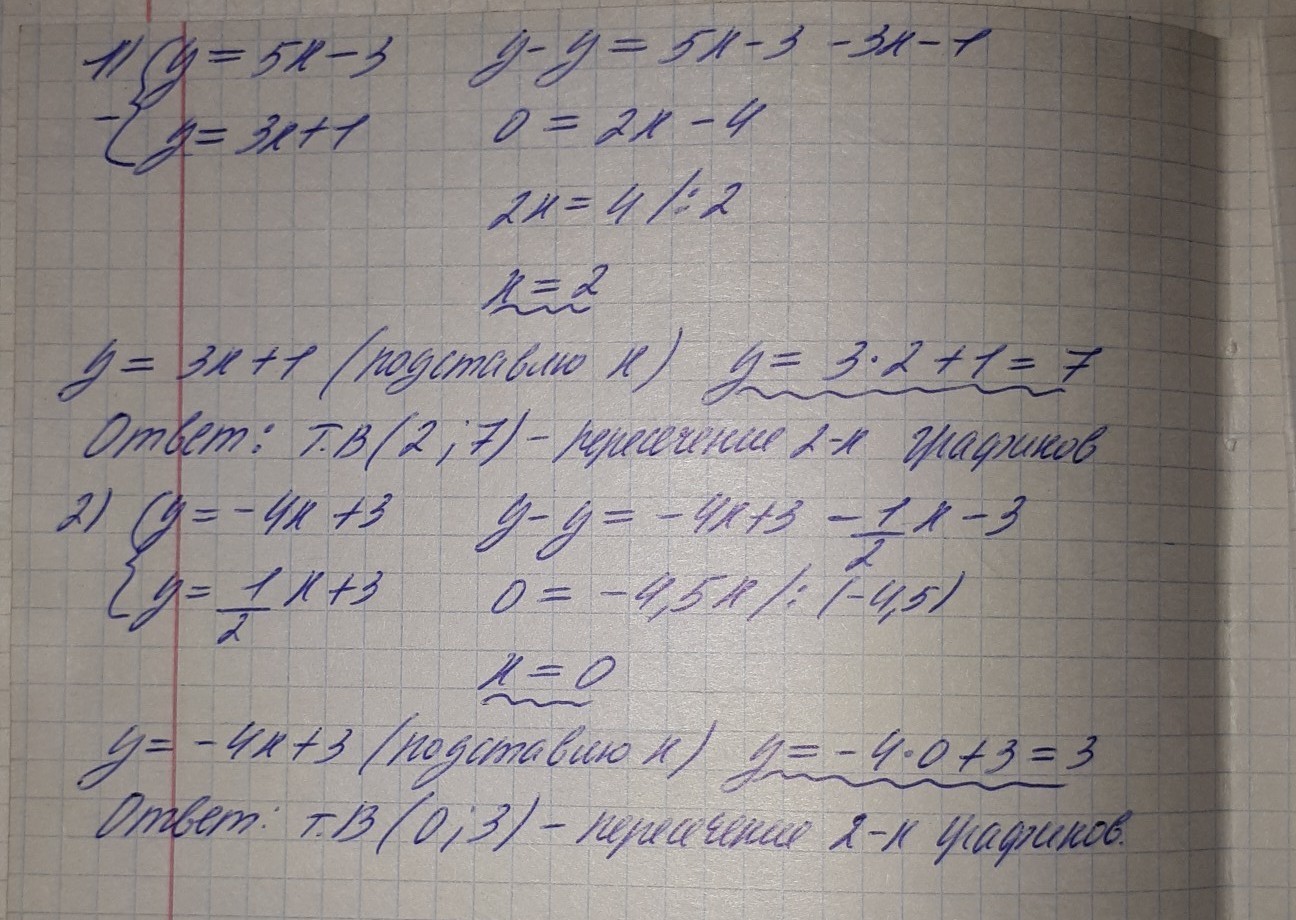 1) { y = 5x - 3 y - y = 5x - 3 - 3x - 1
- { y = 3x + 1 0 = 2x - 4
2x = 4 /: 2
x = 2
y = 3x + 1 (подставлю x) y = 3·2 + 1 = 7
Ответ: т.В (2; 7) - пересечение 2-х графиков
2) { y = -4x + 3 y - y = -4x + 3 - 1/2 x - 3
{ y = 1/2 x + 3 0 = -4,5x /: (-4,5)
x = 0
y = -4x + 3 (подставлю x) y = -4·0 + 3 = 3
Ответ: т.В (0; 3) - пересечение 2-х графиков.